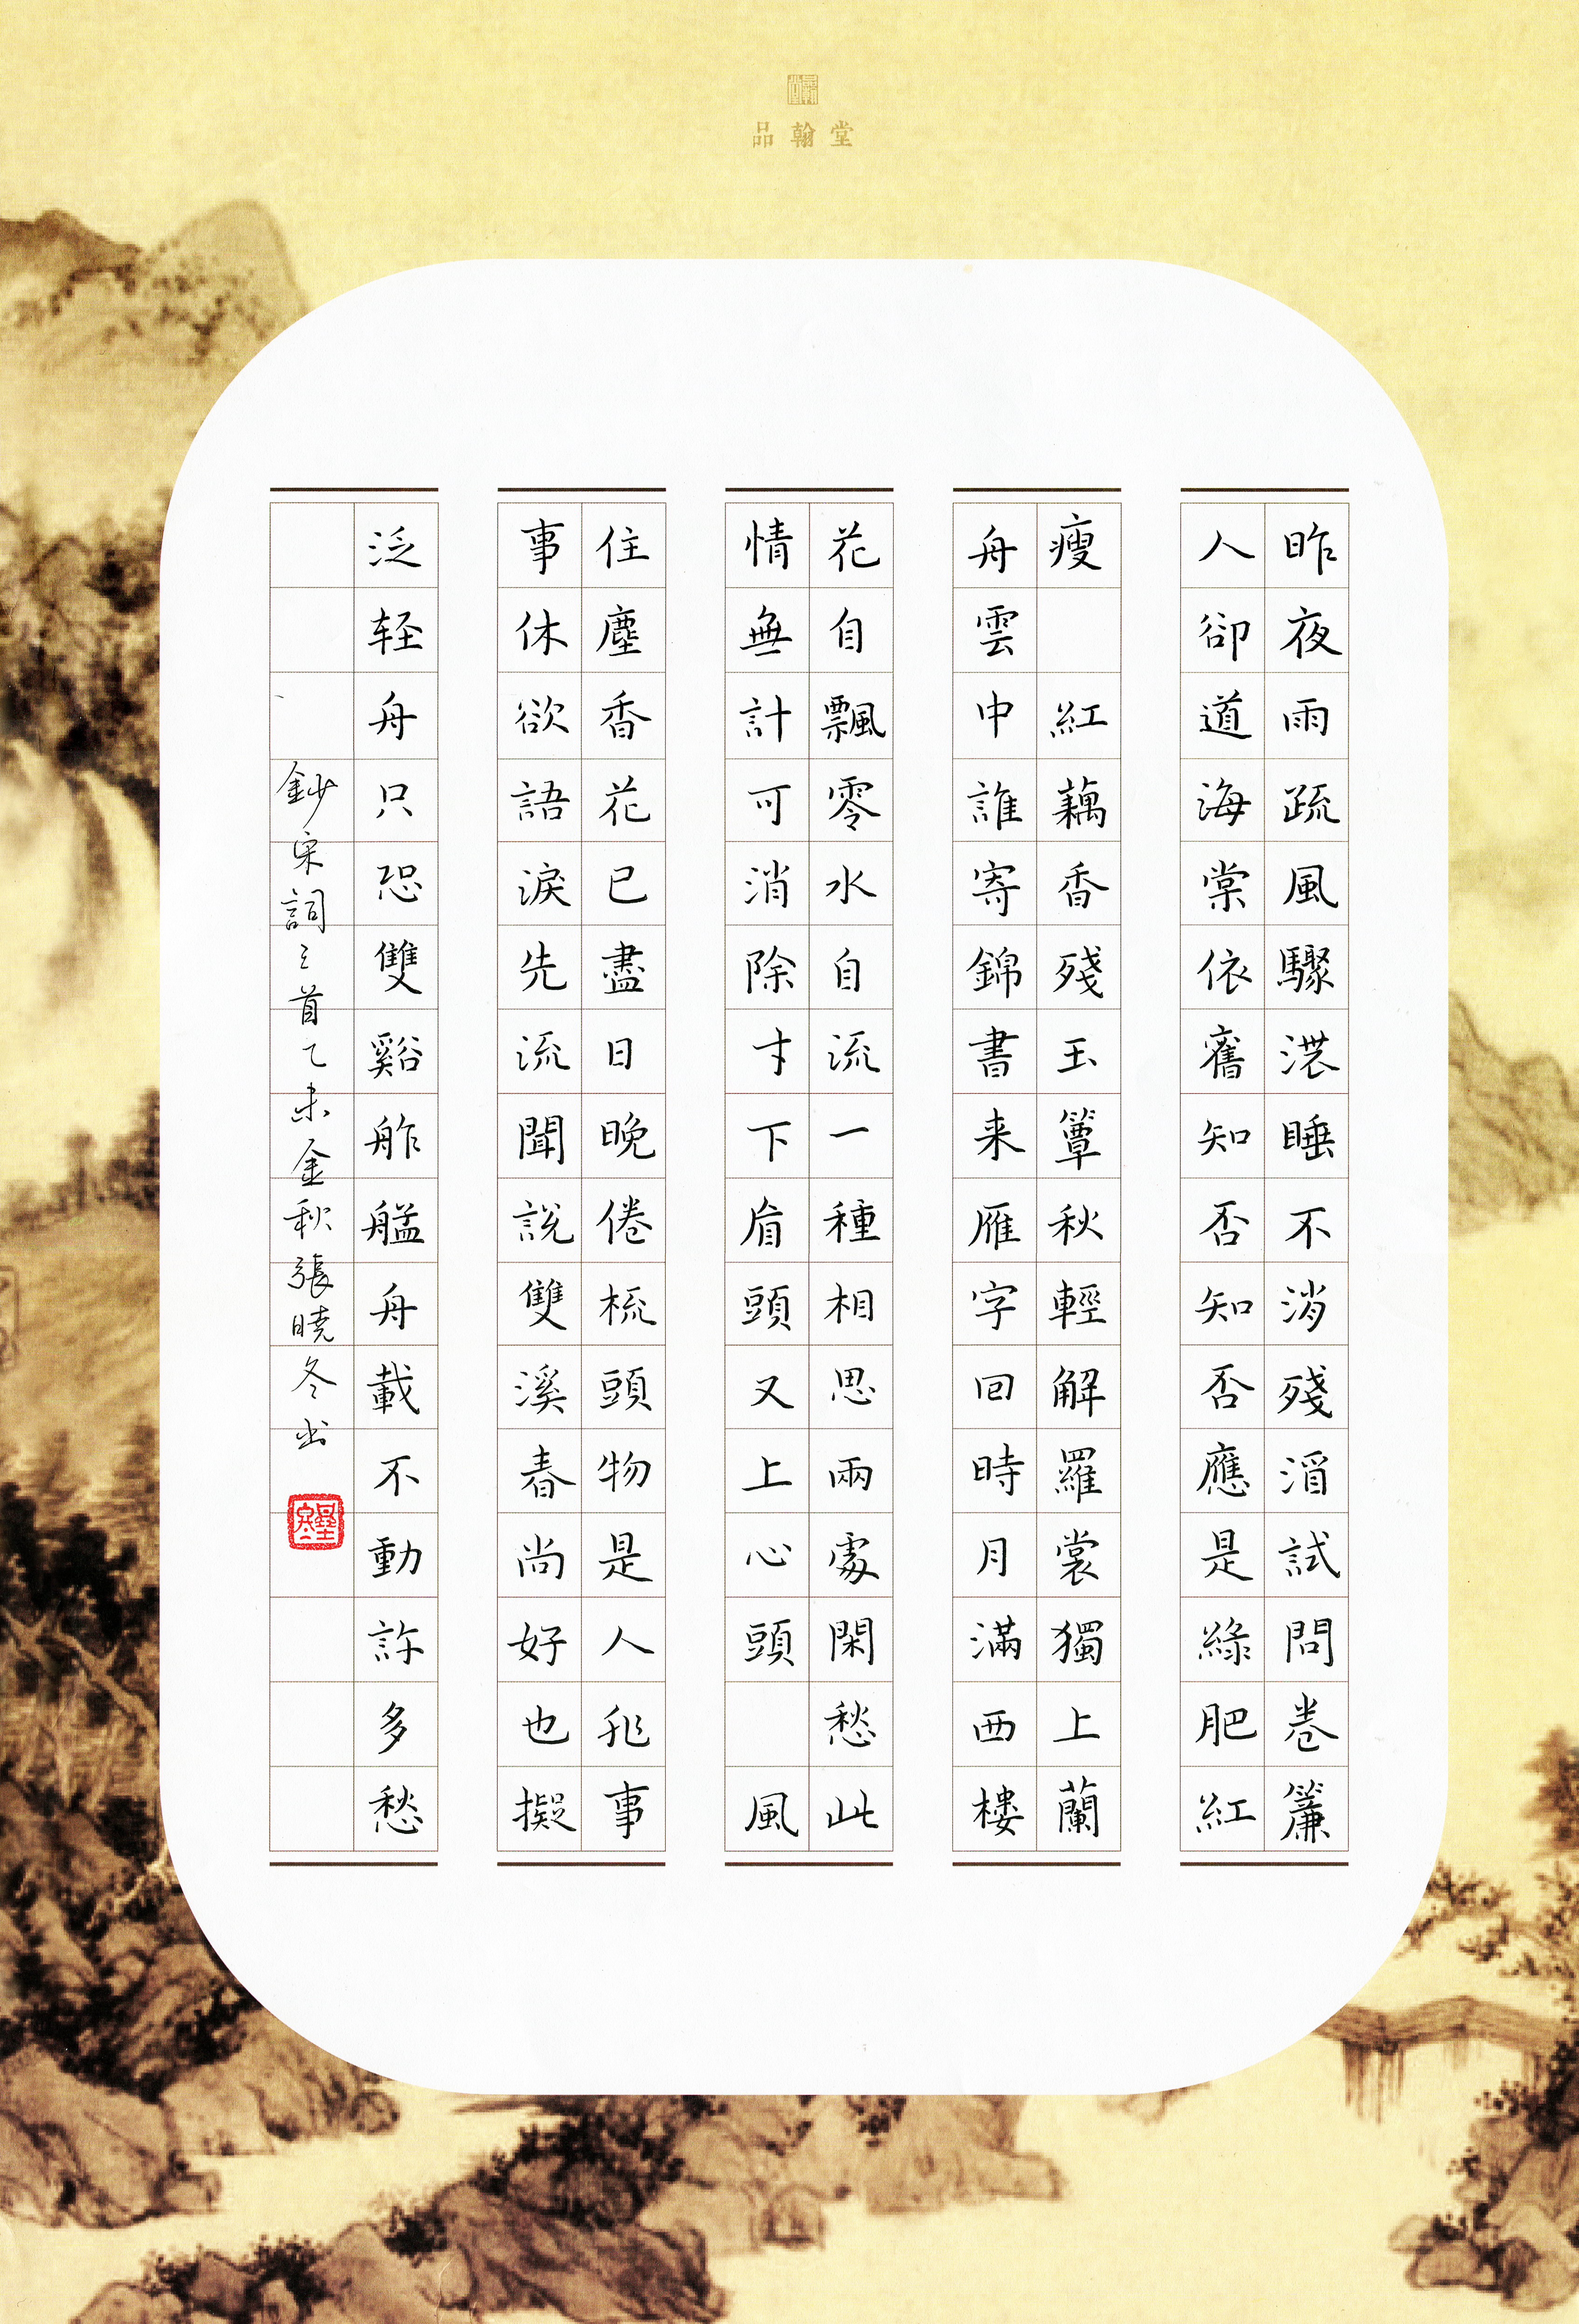 品翰堂
昨夜雨疏風驟濃睡不消殘酒試問卷簾
人卻道海棠依舊知否知否應是綠肥紅
瘦 紅藕香殘玉簟秋輕解羅裳獨上蘭
舟雲中誰寄錦書来雁字回時月滿西樓
花自飄零水自流一種相思兩處閑愁此
情無計可消除才下眉頭又上心頭 風
住塵香花已盡日晚倦梳頭物是人非事
事休欲語淚先流聞說雙溪春尚好也擬
泛轻舟只恐雙谿舴艋舟載不動許多愁
鈔宋詞三首乙未金秋張曉冬书